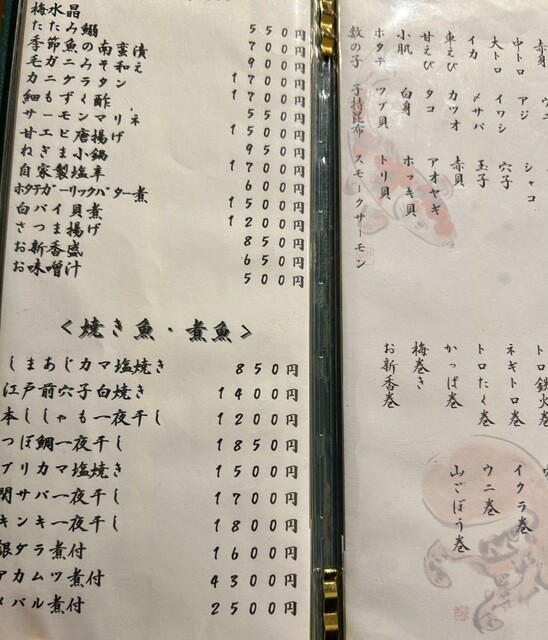 梅水晶 550円
たたみ鰯 700円
季節魚の南蛮漬 900円
毛ガニみそ和え 1700円
カニグラタン 1700円
細もずく酢 500円
サーモンマリネ 1500円
甘エビ唐揚げ 950円
ねぎま小鍋 1700円
自家製塩辛 600円
ホタテガーリックバター煮 1500円
白バイ貝煮 1200円
さつま揚げ 850円
お新香盛 650円
お味噌汁 500円
＜焼き魚・煮魚＞
しまあじカマ塩焼き 850円
江戸前穴子白焼き 1400円
本ししゃも一夜干し 1200円
つぼ鯛一夜干し 1850円
ブリカマ塩焼き 1500円
関サバ一夜干し 1700円
キンキ一夜干し 1800円
銀ダラ煮付 1600円
アカムツ煮付 4300円
メバル煮付 2500円
赤身
中トロ
大トロ
イカ
車えび
甘えび
小肌
ホタテ
数の子
ウニ
アジ
イワシ
〆サバ
カツオ
タコ
白身
ツブ貝
子持昆布
シャコ
穴子
玉子
赤貝
アオヤギ
ホッキ貝
トリ貝
スモークサーモン
トロ鉄火巻
ネギトロ巻
トロたく巻
かっぱ巻
梅巻き
お新香巻
イクラ巻
ウニ巻
山ごぼう巻